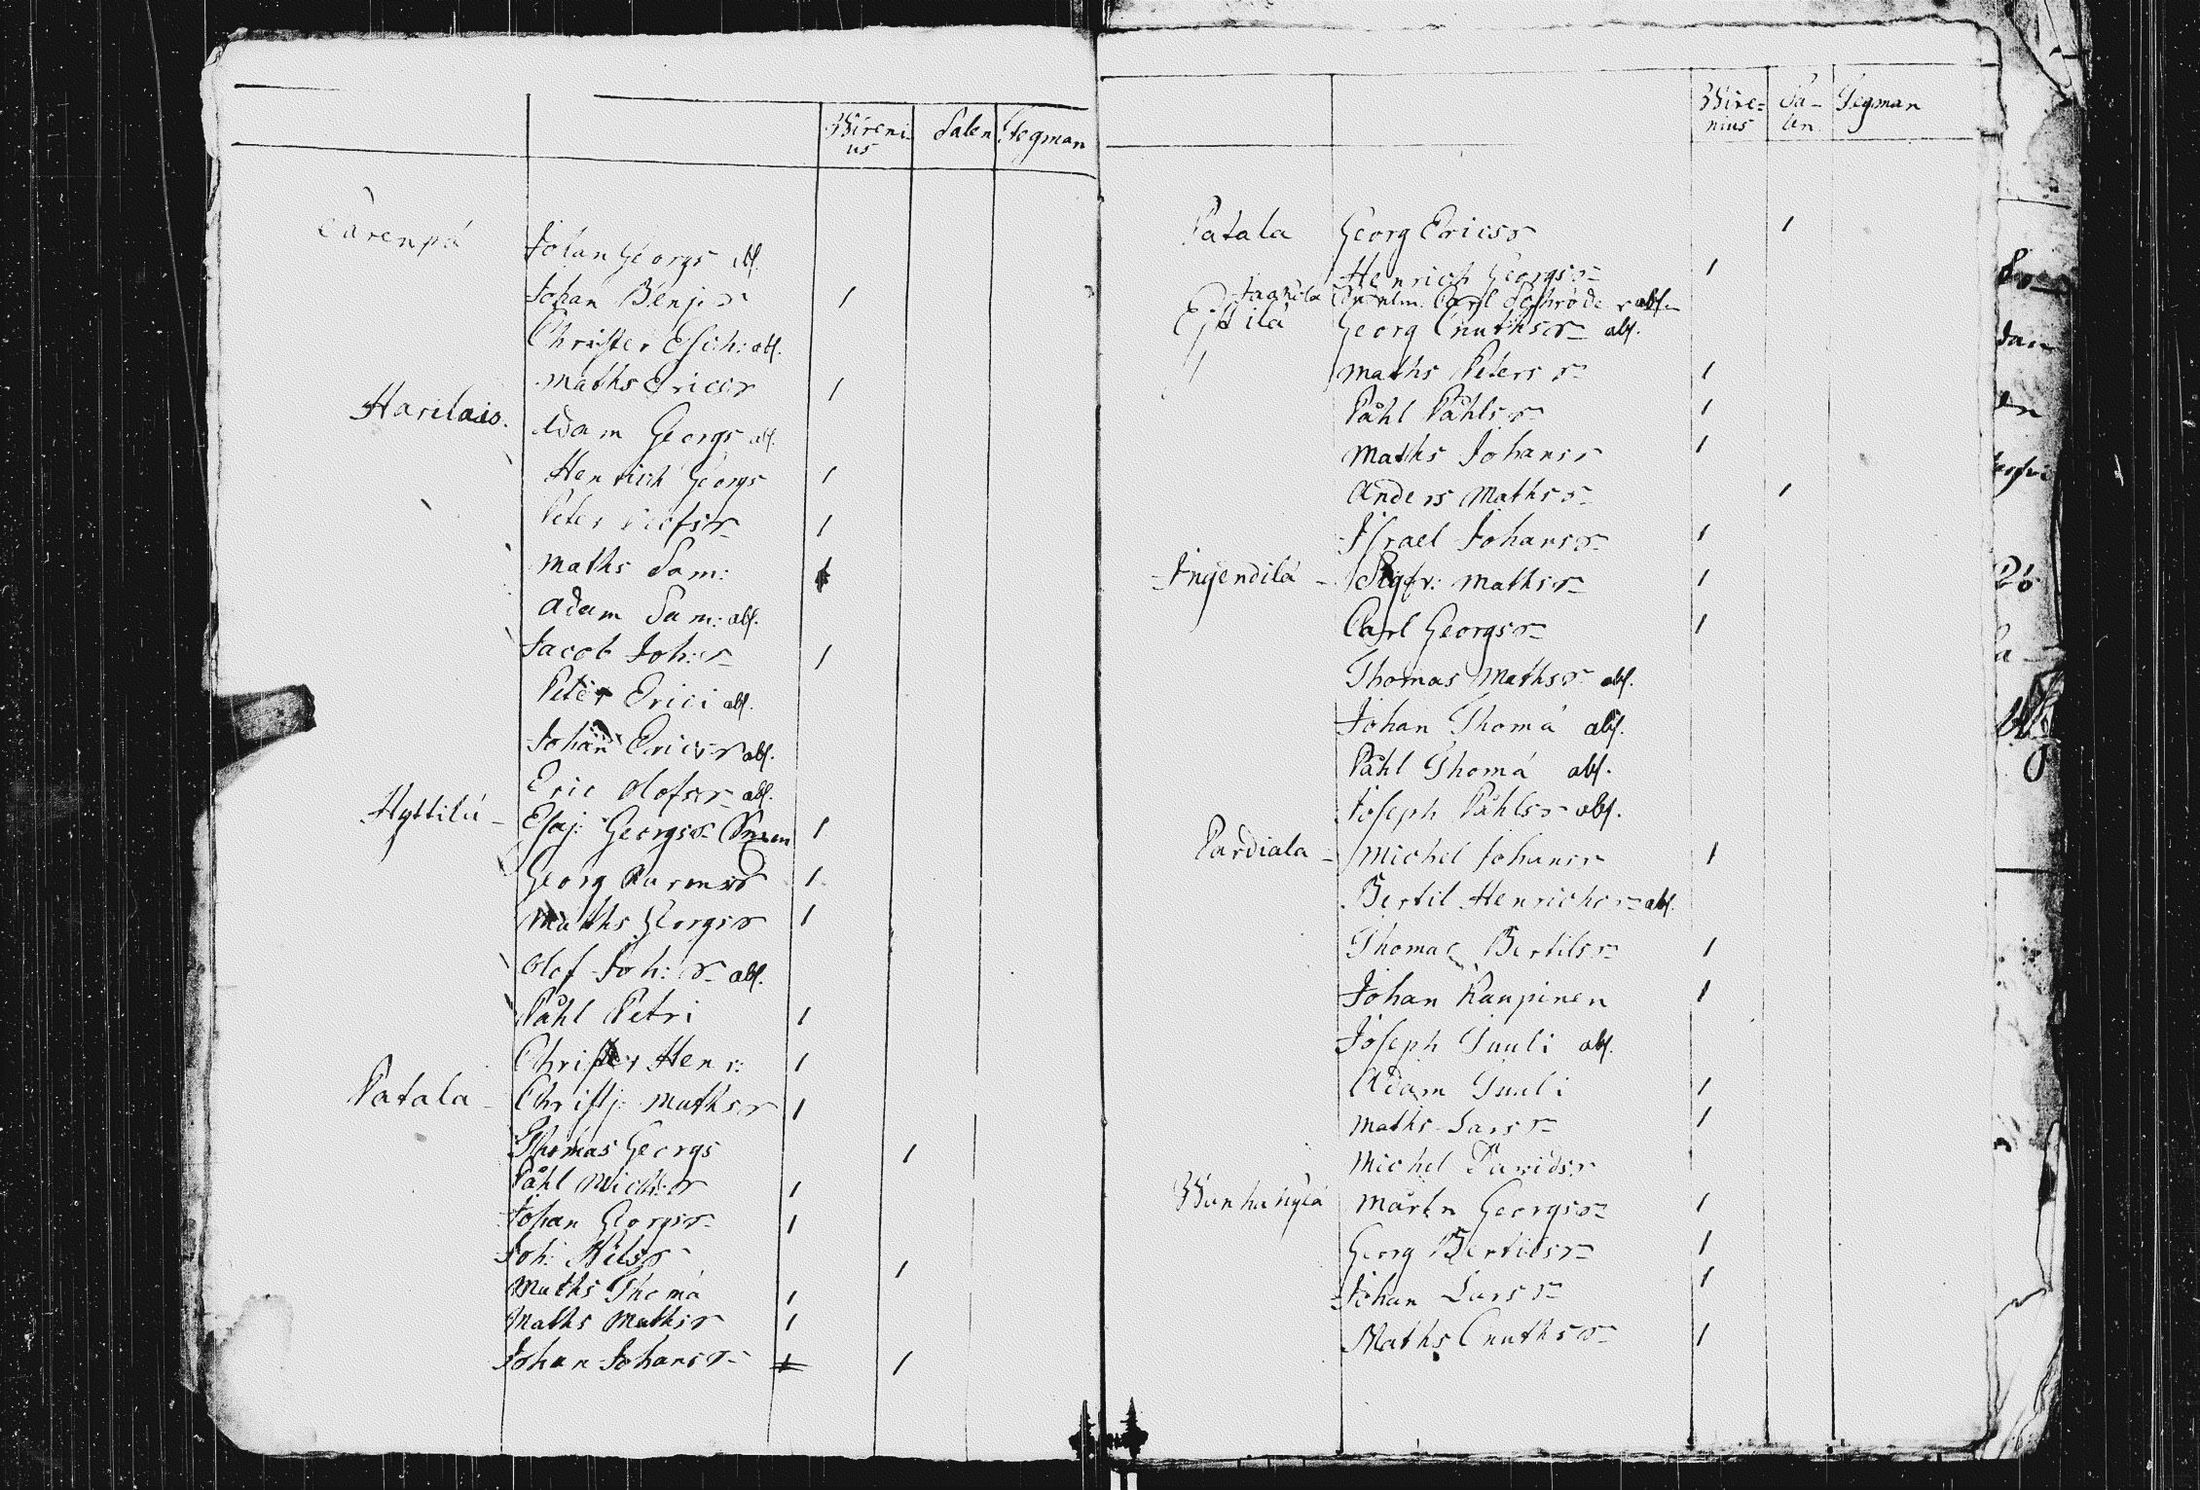 Bireni- Salen Stegman
us
Johan Georgs abs.
Johan Benj: sr
Christer Esich: abs.
Maths Ericsr
Harilais. Adam Georgs abs.
Henrich Georgs
Peter Olofsr
Maths Sam:
Adam Sam: abs.
Jacob Joh: sr
Peter Erici abs.
Johan Ericsr abs.
Eric Olofsr abs.
Hyttilä Esaj: Georgsr
Georg
Maths Georgsr
Olof Joh: sr abs.
Påhl Petri
Christer Henr:
Patala Christj: Mathsr
Thomas Georgs
Påhl Mich: sr
Johan Georgsr
Joh: Nilsr
Maths Thomä
Maths Mathsr
Johan Johansr
Bire= Sa- Tegman
nius len
Patala Georg Ericsr
Henrich Georgsr
Carl Schröder abs.
Georg Cnuthsr abs.
Maths Petersr
Påhl Påhlsr
Maths Johansr
Anders Mathsr
Israel Johansr
Ingendilä Sigfr: Mathsr
Carl Georgsr
Thomas Mathsr abs.
Johan Thomä abs.
Påhl Thomä abs.
Joseph Påhlsr abs.
Pardiala Michel Johansr
Bertil Henrichsr abs.
Thomas Bertilsr
Johan Kaupinen
Joseph Tuuli abs.
Adam Tuuli
Maths Larsr
Michel Davidsr
Mårtn Georgsr
Georg Bertilsr
Johan Larssr
Maths Cnuthsr